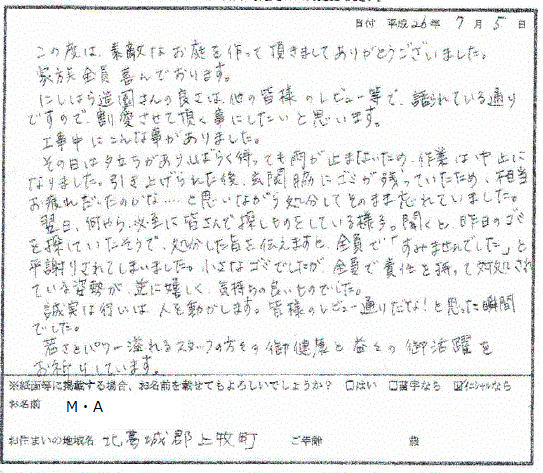 日付 平成26年 7月 5日
この度は、素敵なお庭を作って頂きましてありがとうございました。
家族全員喜んでおります。
にしはら造園さんの良さは、他の皆様のレビュー等で、語られている通り
ですので、割愛させて頂く事にしたいと思います。
工事中にこんな事がありました。
その日は夕立ちがありしばらく待っても雨が止まないため、作業は中止に
なりました。引き上げられた後、玄関脇にゴミが残っていたため、相当
お疲れだったのかな……と思いながら処分してそのまま忘れていました。
翌日、何やら必至に皆さんで探しものをしている様子。聞くと、昨日のゴミ
を探していたそうで、処分した旨を伝えますと、全員で「すみませんでした」と
平謝りされてしまいました。小さなゴミでしたが、全員で責任を持って対処され
ている姿勢が、逆に嬉しく、気持ちの良いものでした。
誠実な行いは、人を動かします。皆様のレビュー通りだな!と思った瞬間
でした。
若さとパワー溢れるスタッフの方々の御健康と益々の御活躍を
お祈りしています。
※紙面等に掲載する場合、お名前を載せてもよろしいでしょうか? □はい □苗字なら ☑イニシャルなら
お名前 M・A
お住まいの地域名 北葛城郡上牧町 ご年齢 歳